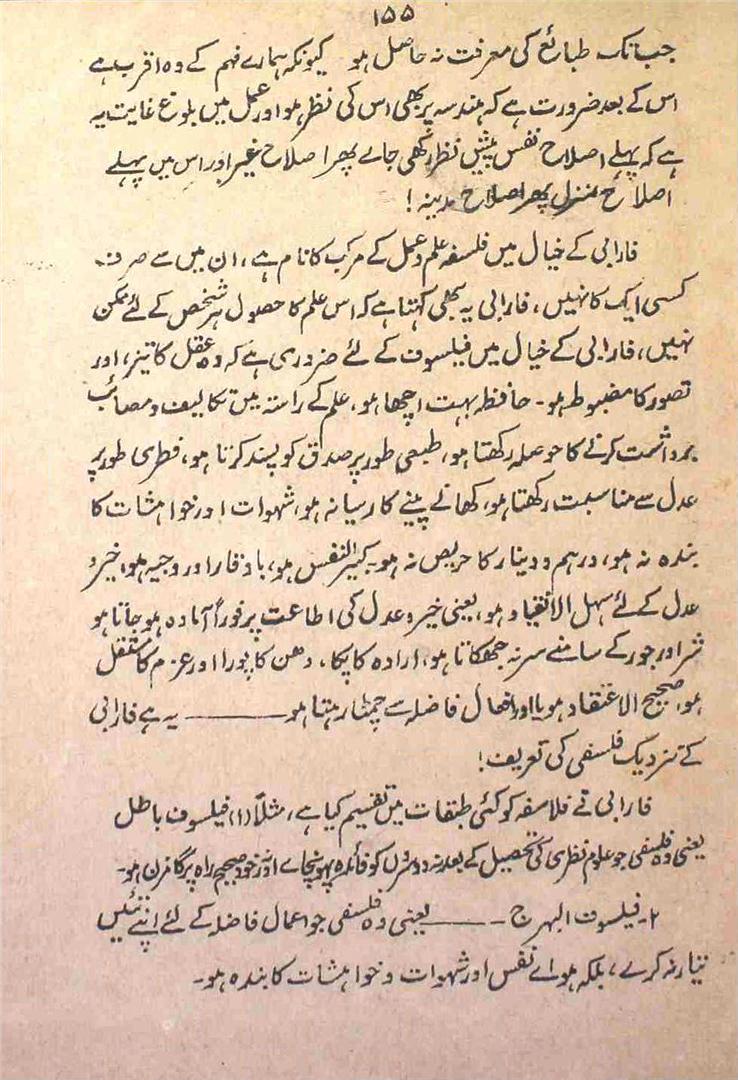 ۱۵۵
جب تک طبائع کی معرفت نہ حاصل ہو کیونکہ ہمارے فہم کے وہ اقرب ہے
اس کے بعد ضرورت ہے کہ ہندسہ پر بھی اس کی نظر ہو اور عمل میں بلوغ غایت یہ
ہے کہ پہلے اصلاح نفس پیش نظر رکھی جائے پھر اصلاح غیر اور اس میں پہلے
اصلاح منزل پھر اصلاح مدینہ!
فارابی کے خیال میں فلسفہ علم و عمل کے مرکب کا نام ہے، ان میں سے صرف
کسی ایک کا نہیں، فارابی یہ بھی کہتا ہے کہ اس علم کا حصول ہر شخص کے لئے ممکن
نہیں، فارابی کے خیال میں فیلسوف کے لئے ضروری ہے کہ وہ عقل کا تیز، اور
تصور کا مضبوط ہو۔ حافظہ بہت اچھا ہو، علم کے راستہ میں تکالیف و مصائب
برداشت کرنے کا حوصلہ رکھتا ہو، طبعی طور پر صدق کو پسند کرتا ہو، فطری طور پر
عدل سے مناسبت رکھتا ہو، کھانے پینے کا رسیا نہ ہو، شہوات اور خواہشات کا
بندہ نہ ہو، درہم و دینار کا حریص نہ ہو۔ کبیر النفس ہو، باوقار اور وجیہ ہو، خیر و
عدل کے لئے سہل الانقیاد ہو، یعنی خیر و عدل کی اطاعت پر فوراً آمادہ ہو جاتا ہو
شر اور جور کے سامنے سر نہ جھکاتا ہو، ارادہ کا پکا، دھن کا پورا اور عزم کا مستقل
ہو، صحیح الاعتقاد ہو اور افعال فاضلہ سے چمٹا رہتا ہو ——— یہ ہے فارابی
کے نزدیک فلسفی کی تعریف!
فارابی نے فلاسفہ کو کئی طبقات میں تقسیم کیا ہے، مثلاً (۱) فیلسوف باطل
یعنی وہ فلسفی جو علوم نظری کی تحصیل کے بعد نہ دوسروں کو فائدہ پہونچائے اور نہ خود صحیح راہ پر گامزن ہو۔
۲۔ فیلسوف البہرج ۔——— یعنی وہ فلسفی جو اعمال فاضلہ کے لئے اپنے تئیں
تیار نہ کرے، بلکہ ہوائے نفس اور شہوات و خواہشات کا بندہ ہو۔